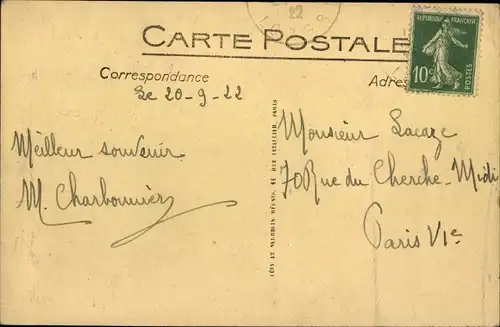 22
CARTE POSTALE
RÉPUBLIQUE FRANÇAISE
10c
POSTES
Correspondance
Adres
Le 20-9-22
Meilleur souvenir
M. Charbonnier
LÉVY ET NEURDEIN RÉUNIS, 44 RUE LETELLIER, PARIS
Monsieur Lacaze
70 Rue du Cherche-Midi
Paris VIe